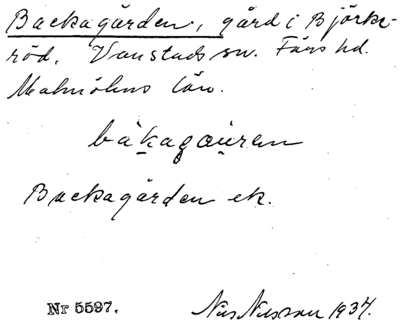 Backagården, gård i Björke-
röd, Vanstads sn. Färs hd.
Malmöhus län.
bakagåuren
Backagården ek.
Nr 5597. Nils Nilsson 1937.